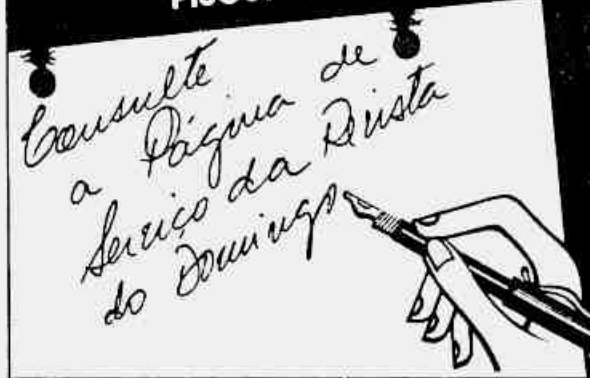 Consulte
a Página de
Serviço da Revista
do Domingo